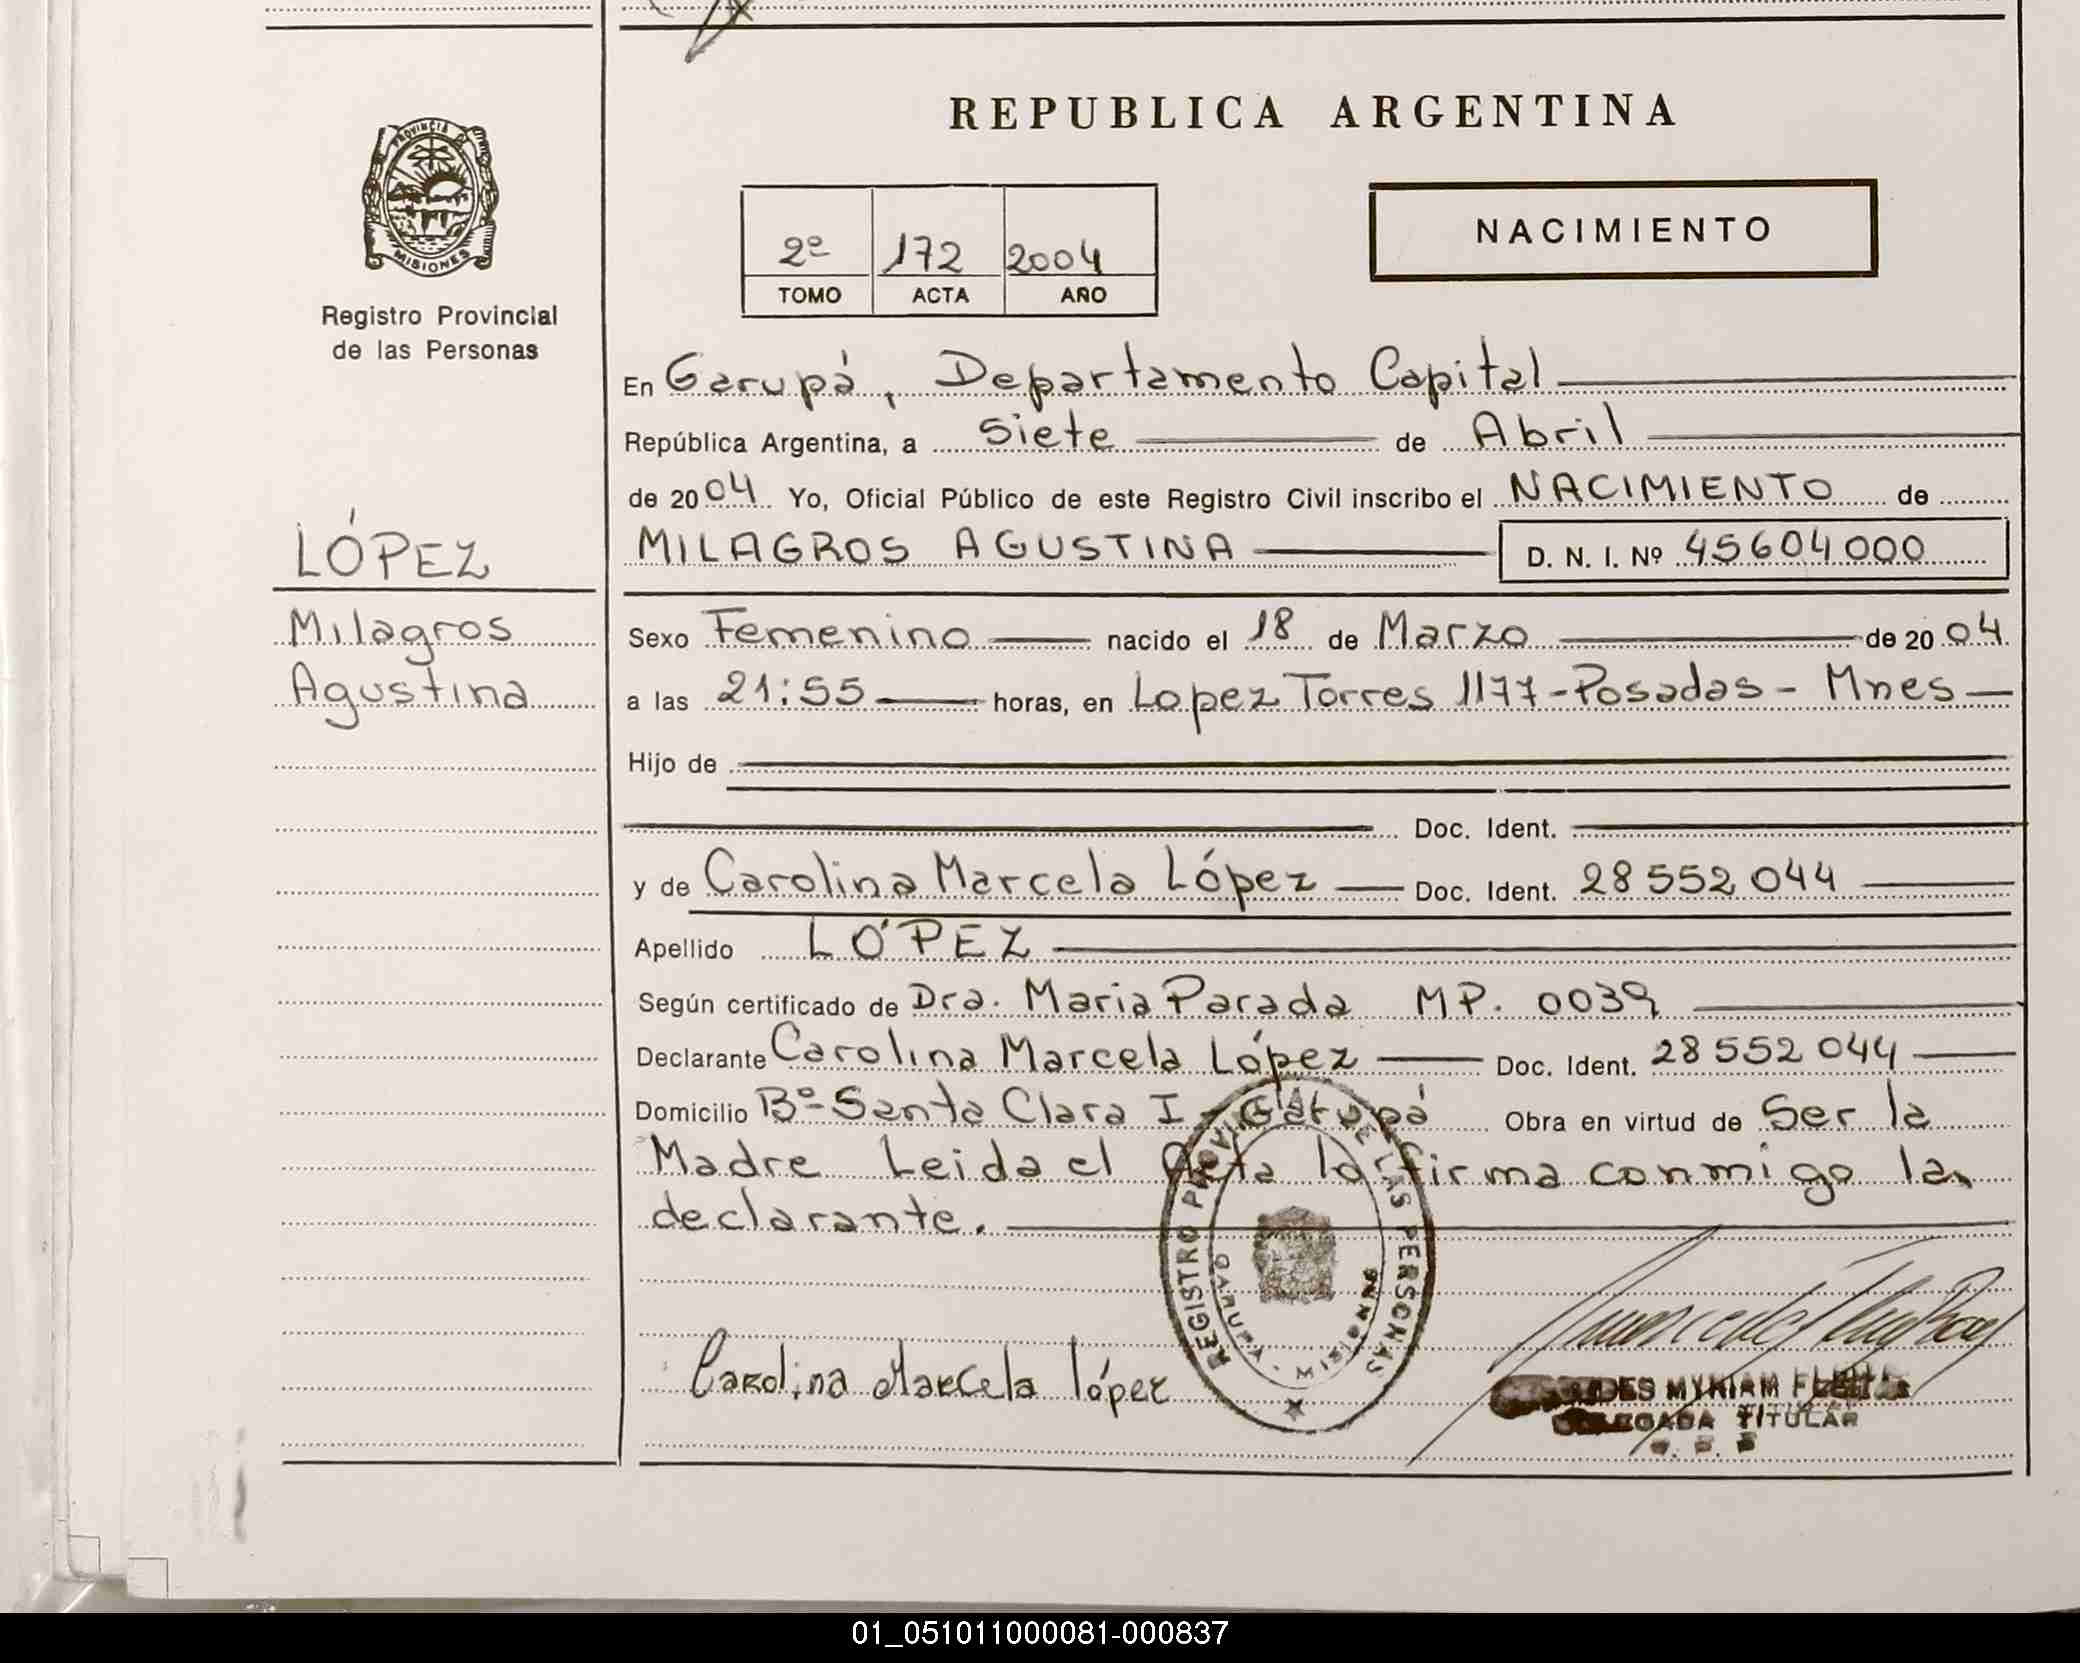 REPUBLICA ARGENTINA
PROVINCIA DE
MISIONES
Registro Provincial
de las Personas
2º 172 2004
TOMO ACTA AÑO
NACIMIENTO
En Garupá, Departamento Capital
República Argentina, a siete de Abril
de 2004 Yo, Oficial Público de este Registro Civil inscribo el NACIMIENTO de
MILAGROS AGUSTINA D. N. I. Nº 45604000
LÓPEZ
Milagros
Agustina
Sexo Femenino nacido el 18 de Marzo de 2004
a las 21:55 horas, en Lopez Torres 1177-Posadas-Mnes
Hijo de
Doc. Ident.
y de Carolina Marcela López Doc. Ident. 28552044
Apellido LÓPEZ
Según certificado de Dra. Maria Parada MP. 0039
Declarante Carolina Marcela López Doc. Ident. 28552044
Domicilio Bº Santa Clara I - Garupá Obra en virtud de Ser la
Madre Leida el Acta la firma conmigo la
declarante.
REGISTRO PROVINCIAL DE LAS PERSONAS
GARUPA - MISIONES
Carolina Marcela López
MYRIAM
DELEGADA TITULAR
01_051011000081-000837